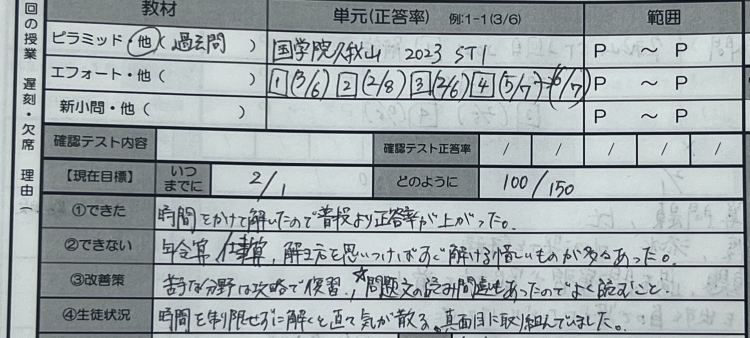 回の授業 遅刻・欠席 理由
教材 単元(正答率) 例:1-1(3/6) 範囲
ピラミッド・他(過去問) 国学院久我山 2023 ST1 P ～ P
エフォート・他( ) 1(3/6) 2(2/8) 3(2/6) 4(5/7)→(6/7) P ～ P
新小問・他( ) P ～ P
確認テスト内容 確認テスト正答率 / / / / /
【現在目標】 いつまでに 2/1 どのように 100/150
①できた 時間をかけて解いたので普段より正答率が上がった。
②できない 年令算、仕事算、解き方を思いつけばすぐ解ける惜しいものが多々あった。
③改善策 苦手な分野は攻略で復習!、☆問題文の読み間違もあったのでよく読むこと
④生徒状況 時間を制限せずに解くと直ぐ気が散る。真面目に取り組んでいました。